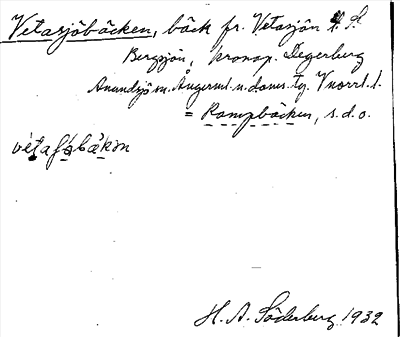 Vetasjöbäcken, bäck fr. Vetasjön t. S.
Bergsjön, kronop. Degerberg
Anundsjö sn. Ångerml. n. doms. tg. Vnorrl. l.
= Rampbäcken, s.d.o.
vètafʂbäkən
H. A. Söderberg 1932